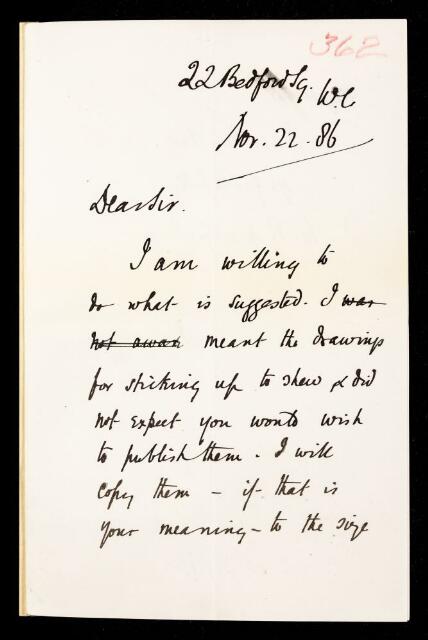 362
22 Bedford Sq.
W.C
Nov. 22. 86
Dear Sir.
I am willing to
do what is suggested. I was
not aware meant the drawings
for sticking up to shew & did
not expect you would wish
to publish them. I will
copy them – if that is
your meaning – to the size